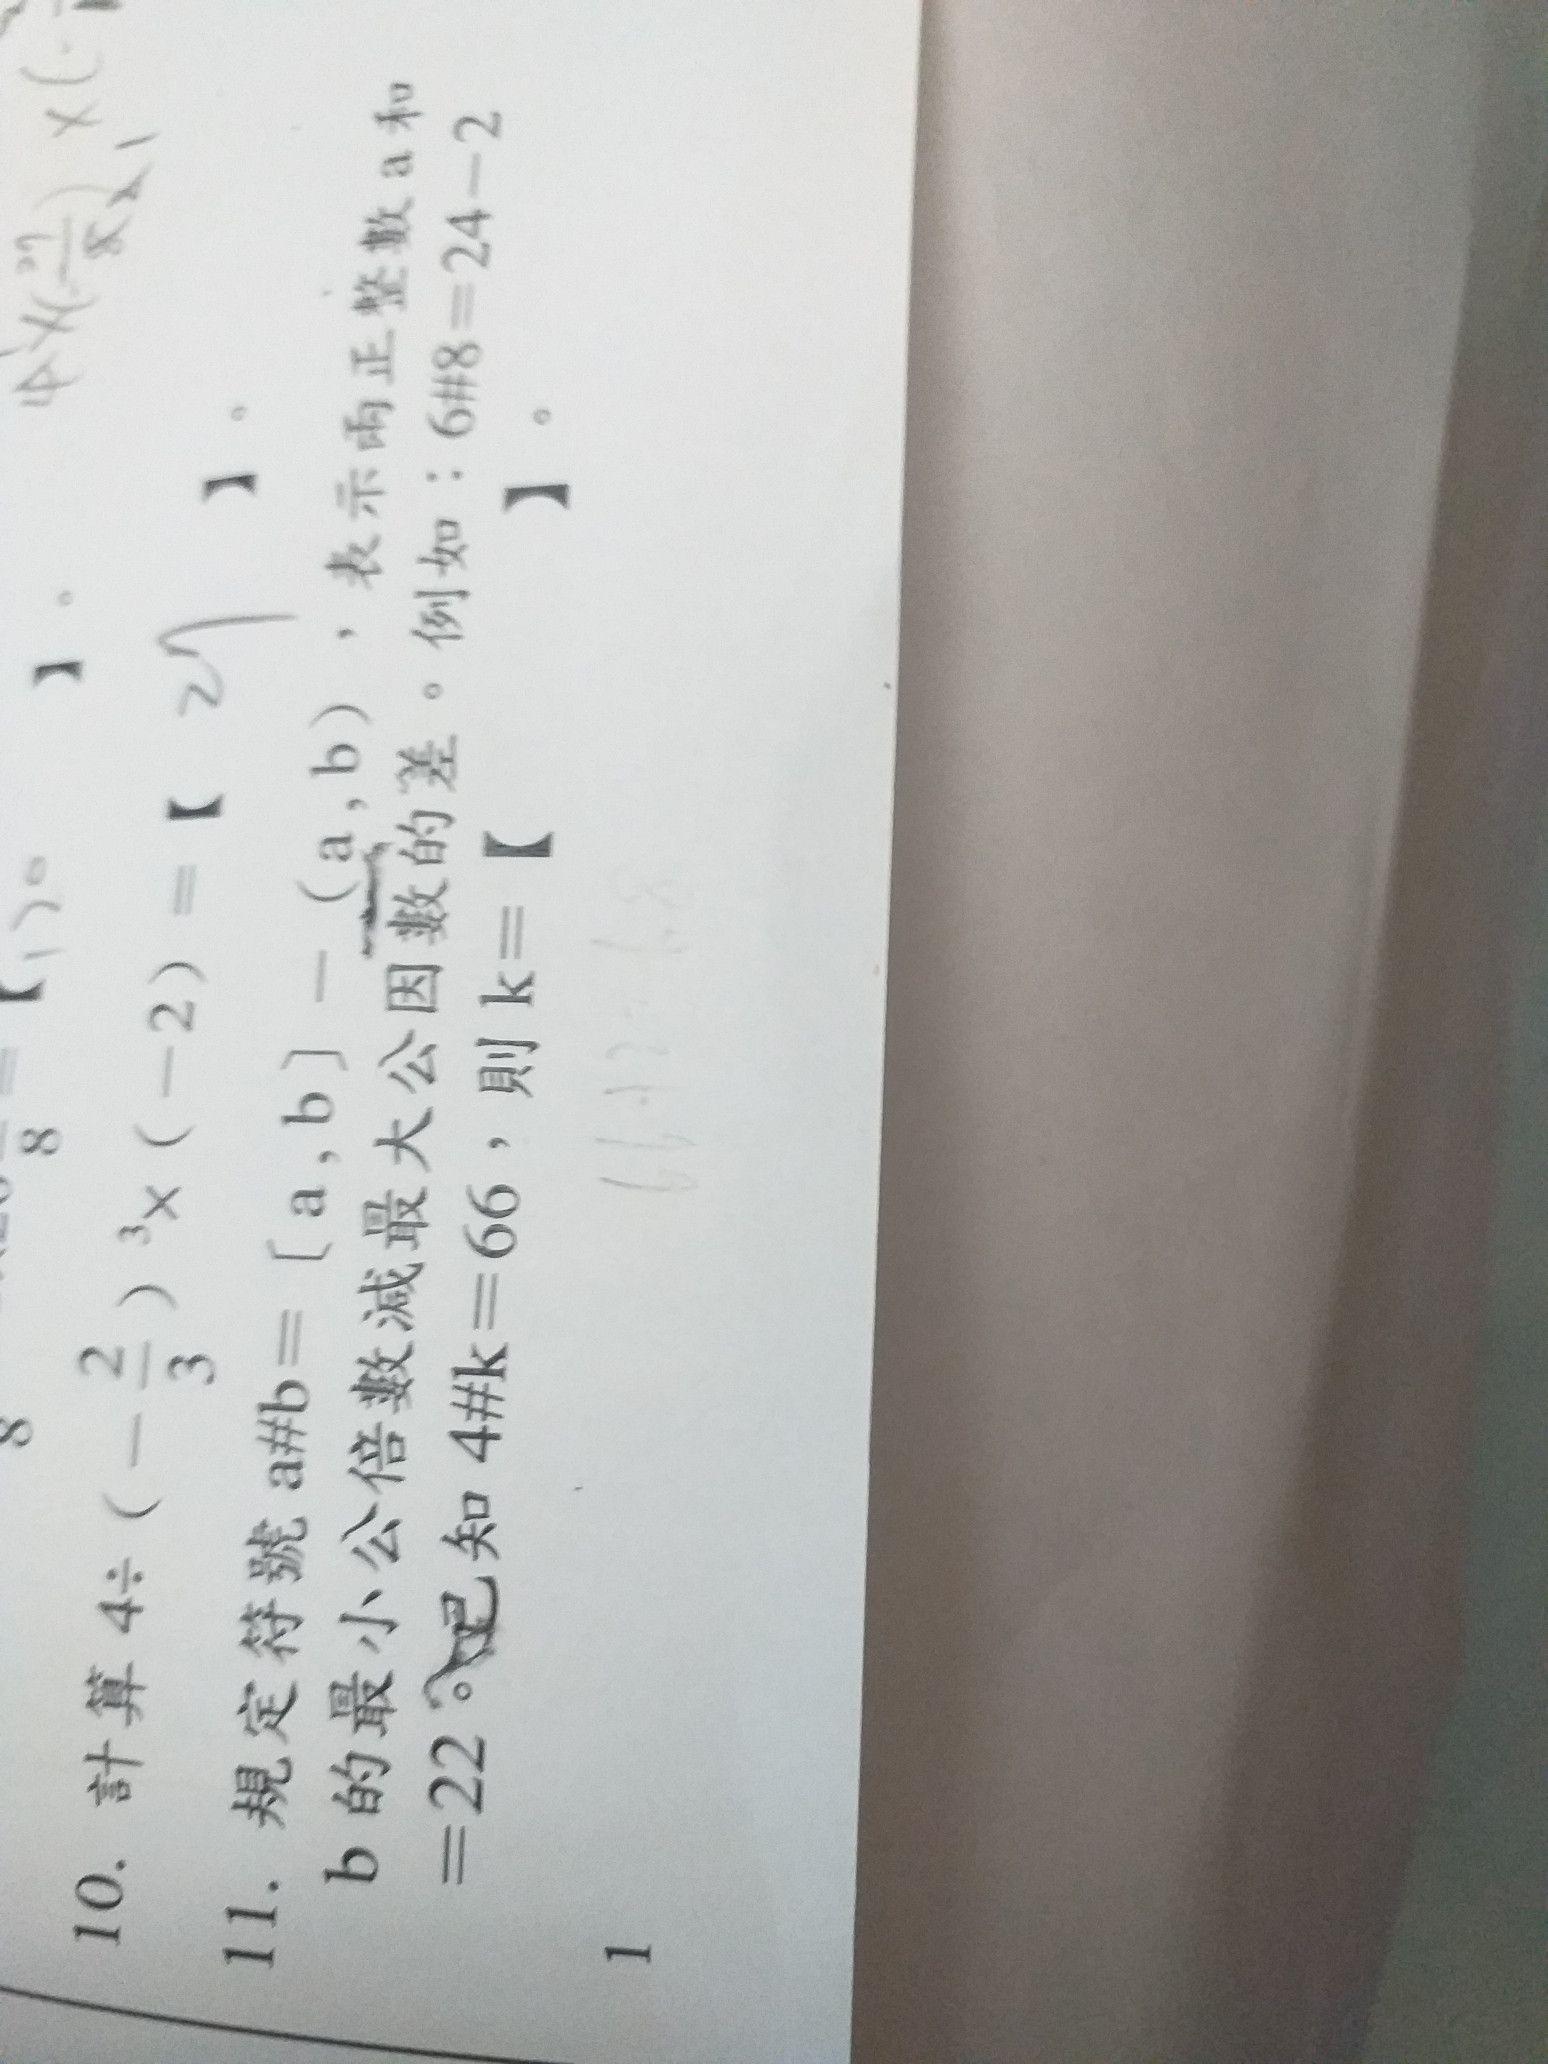 10. 計算 4÷(－2/3)³×(－2)＝【 27 】。
11. 規定符號 a#b＝〔a,b〕－(a,b)，表示兩正整數 a 和
b 的最小公倍數減最大公因數的差。例如：6#8＝24－2
＝22。已知 4#k＝66，則 k＝【 】。
1